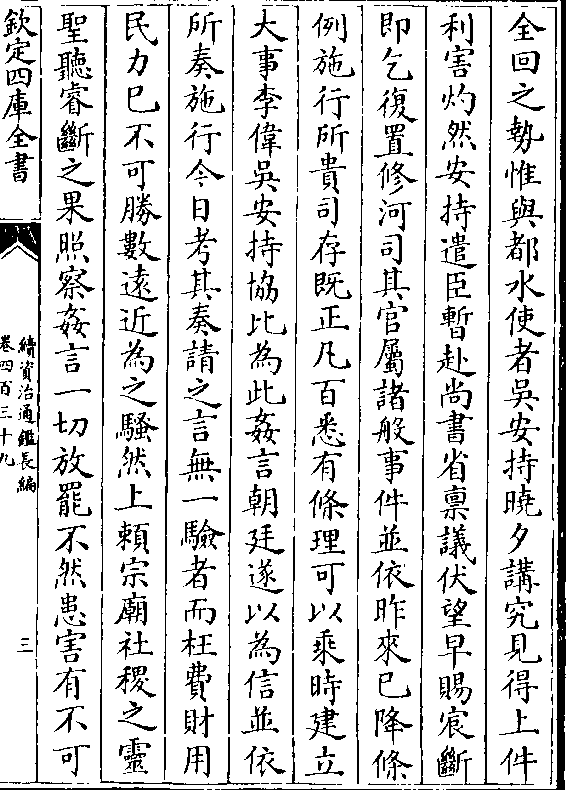 全回之勢惟與都水使者吳安持曉夕講究見得上件
利害灼然安持遣臣暫赴尚書省禀議伏望早賜宸斷
即乞復置修河司其官屬諸般事件並依昨來已降條
例施行所貴司存既正凡百悉有條理可以乘時建立
大事李偉吳安持協比為此姦言朝廷遂以為信並依
所奏施行今日考其奏請之言無一驗者而枉費財用
民力已不可勝數遠近為之騷然上賴宗廟社稷之靈
聖聽睿斷之果照察姦言一切放罷不然患害有不可
欽定四庫全書
續資治通鑑長編
卷四百三十九
三